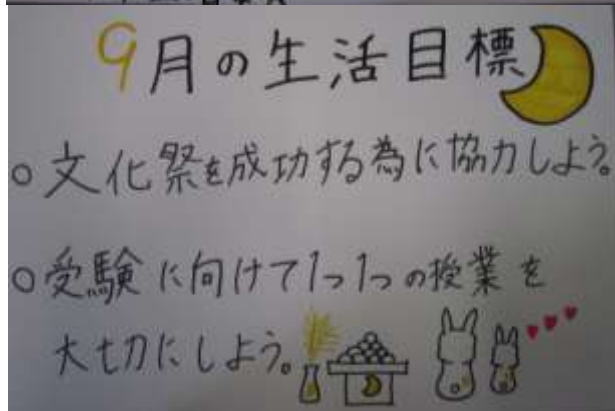 9月の生活目標
○文化祭を成功する為に協力しよう。
○受験に向けて1つ1つの授業を
大切にしよう。